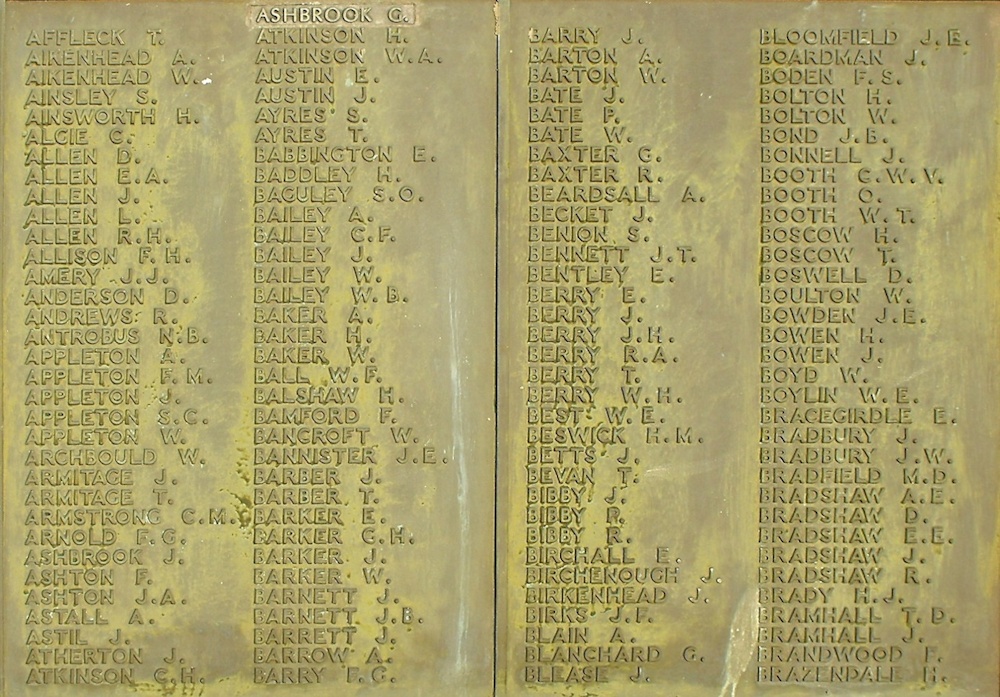 AFFLECK T.
AIKENHEAD A.
AIKENHEAD W.
AINSLEY S.
AINSWORTH H.
ALCIE C.
ALLEN D.
ALLEN E.A.
ALLEN J.
ALLEN L.
ALLEN R.H.
ALLISON F.H.
AMERY J.J.
ANDERSON D.
ANDREWS R.
ANTROBUS N.B.
APPLETON A.
APPLETON F.M.
APPLETON J.
APPLETON S.C.
APPLETON W.
ARCHBOULD W.
ARMITAGE J.
ARMITAGE T.
ARMSTRONG C.M.
ARNOLD F.G.
ASHBROOK J.
ASHTON F.
ASHTON J.A.
ASTALL A.
ASTIL J.
ATHERTON J.
ATKINSON C.H.
ASHBROOK G.
ATKINSON H.
ATKINSON W.A.
AUSTIN E.
AUSTIN J.
AYRES S.
AYRES T.
BABBINGTON E.
BADDLEY H.
BAGULEY S.O.
BAILEY A.
BAILEY C.F.
BAILEY J.
BAILEY W.
BAILEY W.B.
BAKER A.
BAKER H.
BAKER W.
BALL W.F.
BALSHAW H.
BAMFORD F.
BANCROFT W.
BANNISTER J.E.
BARBER J.
BARBER T.
BARKER E.
BARKER G.H.
BARKER J.
BARKER W.
BARNETT J.
BARNETT J.B.
BARRETT J.
BARROW A.
BARRY F.G.
BARRY J.
BARTON A.
BARTON W.
BATE J.
BATE P.
BATE W.
BAXTER G.
BAXTER R.
BEARDSALL A.
BECKET J.
BENION S.
BENNETT J.T.
BENTLEY E.
BERRY E.
BERRY J.
BERRY J.H.
BERRY R.A.
BERRY T.
BERRY W.H.
BEST W.E.
BESWICK H.M.
BETTS J.
BEVAN T.
BIBBY J.
BIBBY P.
BIBBY R.
BIRCHALL E.
BIRCHENOUGH J.
BIRKENHEAD J.
BIRKS J.F.
BLAIN A.
BLANCHARD G.
BLEASE J.
BLOOMFIELD J.E.
BOARDMAN J.
BODEN F.S.
BOLTON H.
BOLTON W.
BOND J.B.
BONNELL J.
BOOTH C.W.V.
BOOTH O.
BOOTH W.T.
BOSCOW H.
BOSCOW T.
BOSWELL D.
BOULTON W.
BOWDEN J.E.
BOWEN H.
BOWEN J.
BOYD W.
BOYLIN W.E.
BRACEGIRDLE E.
BRADBURY J.
BRADBURY J.W.
BRADFIELD M.D.
BRADSHAW A.E.
BRADSHAW D.
BRADSHAW E.E.
BRADSHAW J.
BRADSHAW R.
BRADY H.J.
BRAMHALL T.D.
BRAMHALL J.
BRANDWOOD F.
BRAZENDALE H.